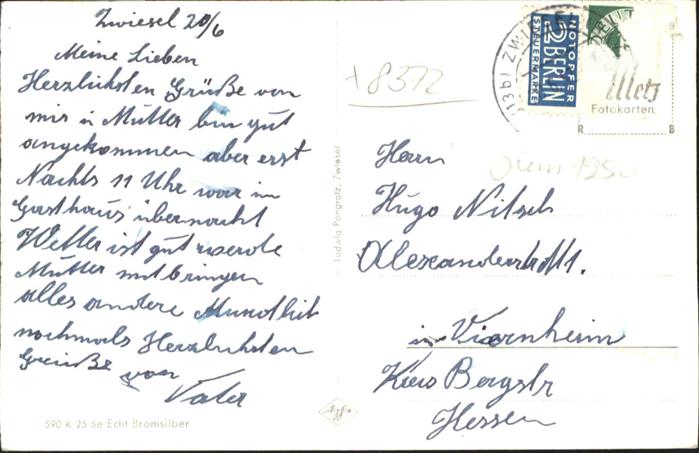 Zwiesel 20/6
Meine Lieben
Herzlichsten Grüße von
mir u Mutter bin gut
angekommen aber erst
Nachts 11 Uhr war im
Gasthaus übernacht
Wetter ist gut werde
Mutter mitbringen
alles andere Mundlich
nochmals Herzlichsten
Grüße von
Vater
590 K 25 Se Echt Bromsilber
Ludwig Pongratz, Zwiesel
Agfa
+ 8372
(13b) ZWIESEL
NOTOPFER
2 BERLIN
STEUERMARKE
Metz
Fotokarten
R B
Juni 1950
Herrn
Hugo Nitsch
Alexanderstr
in Viernheim
Kreis Bergstr
Hessen